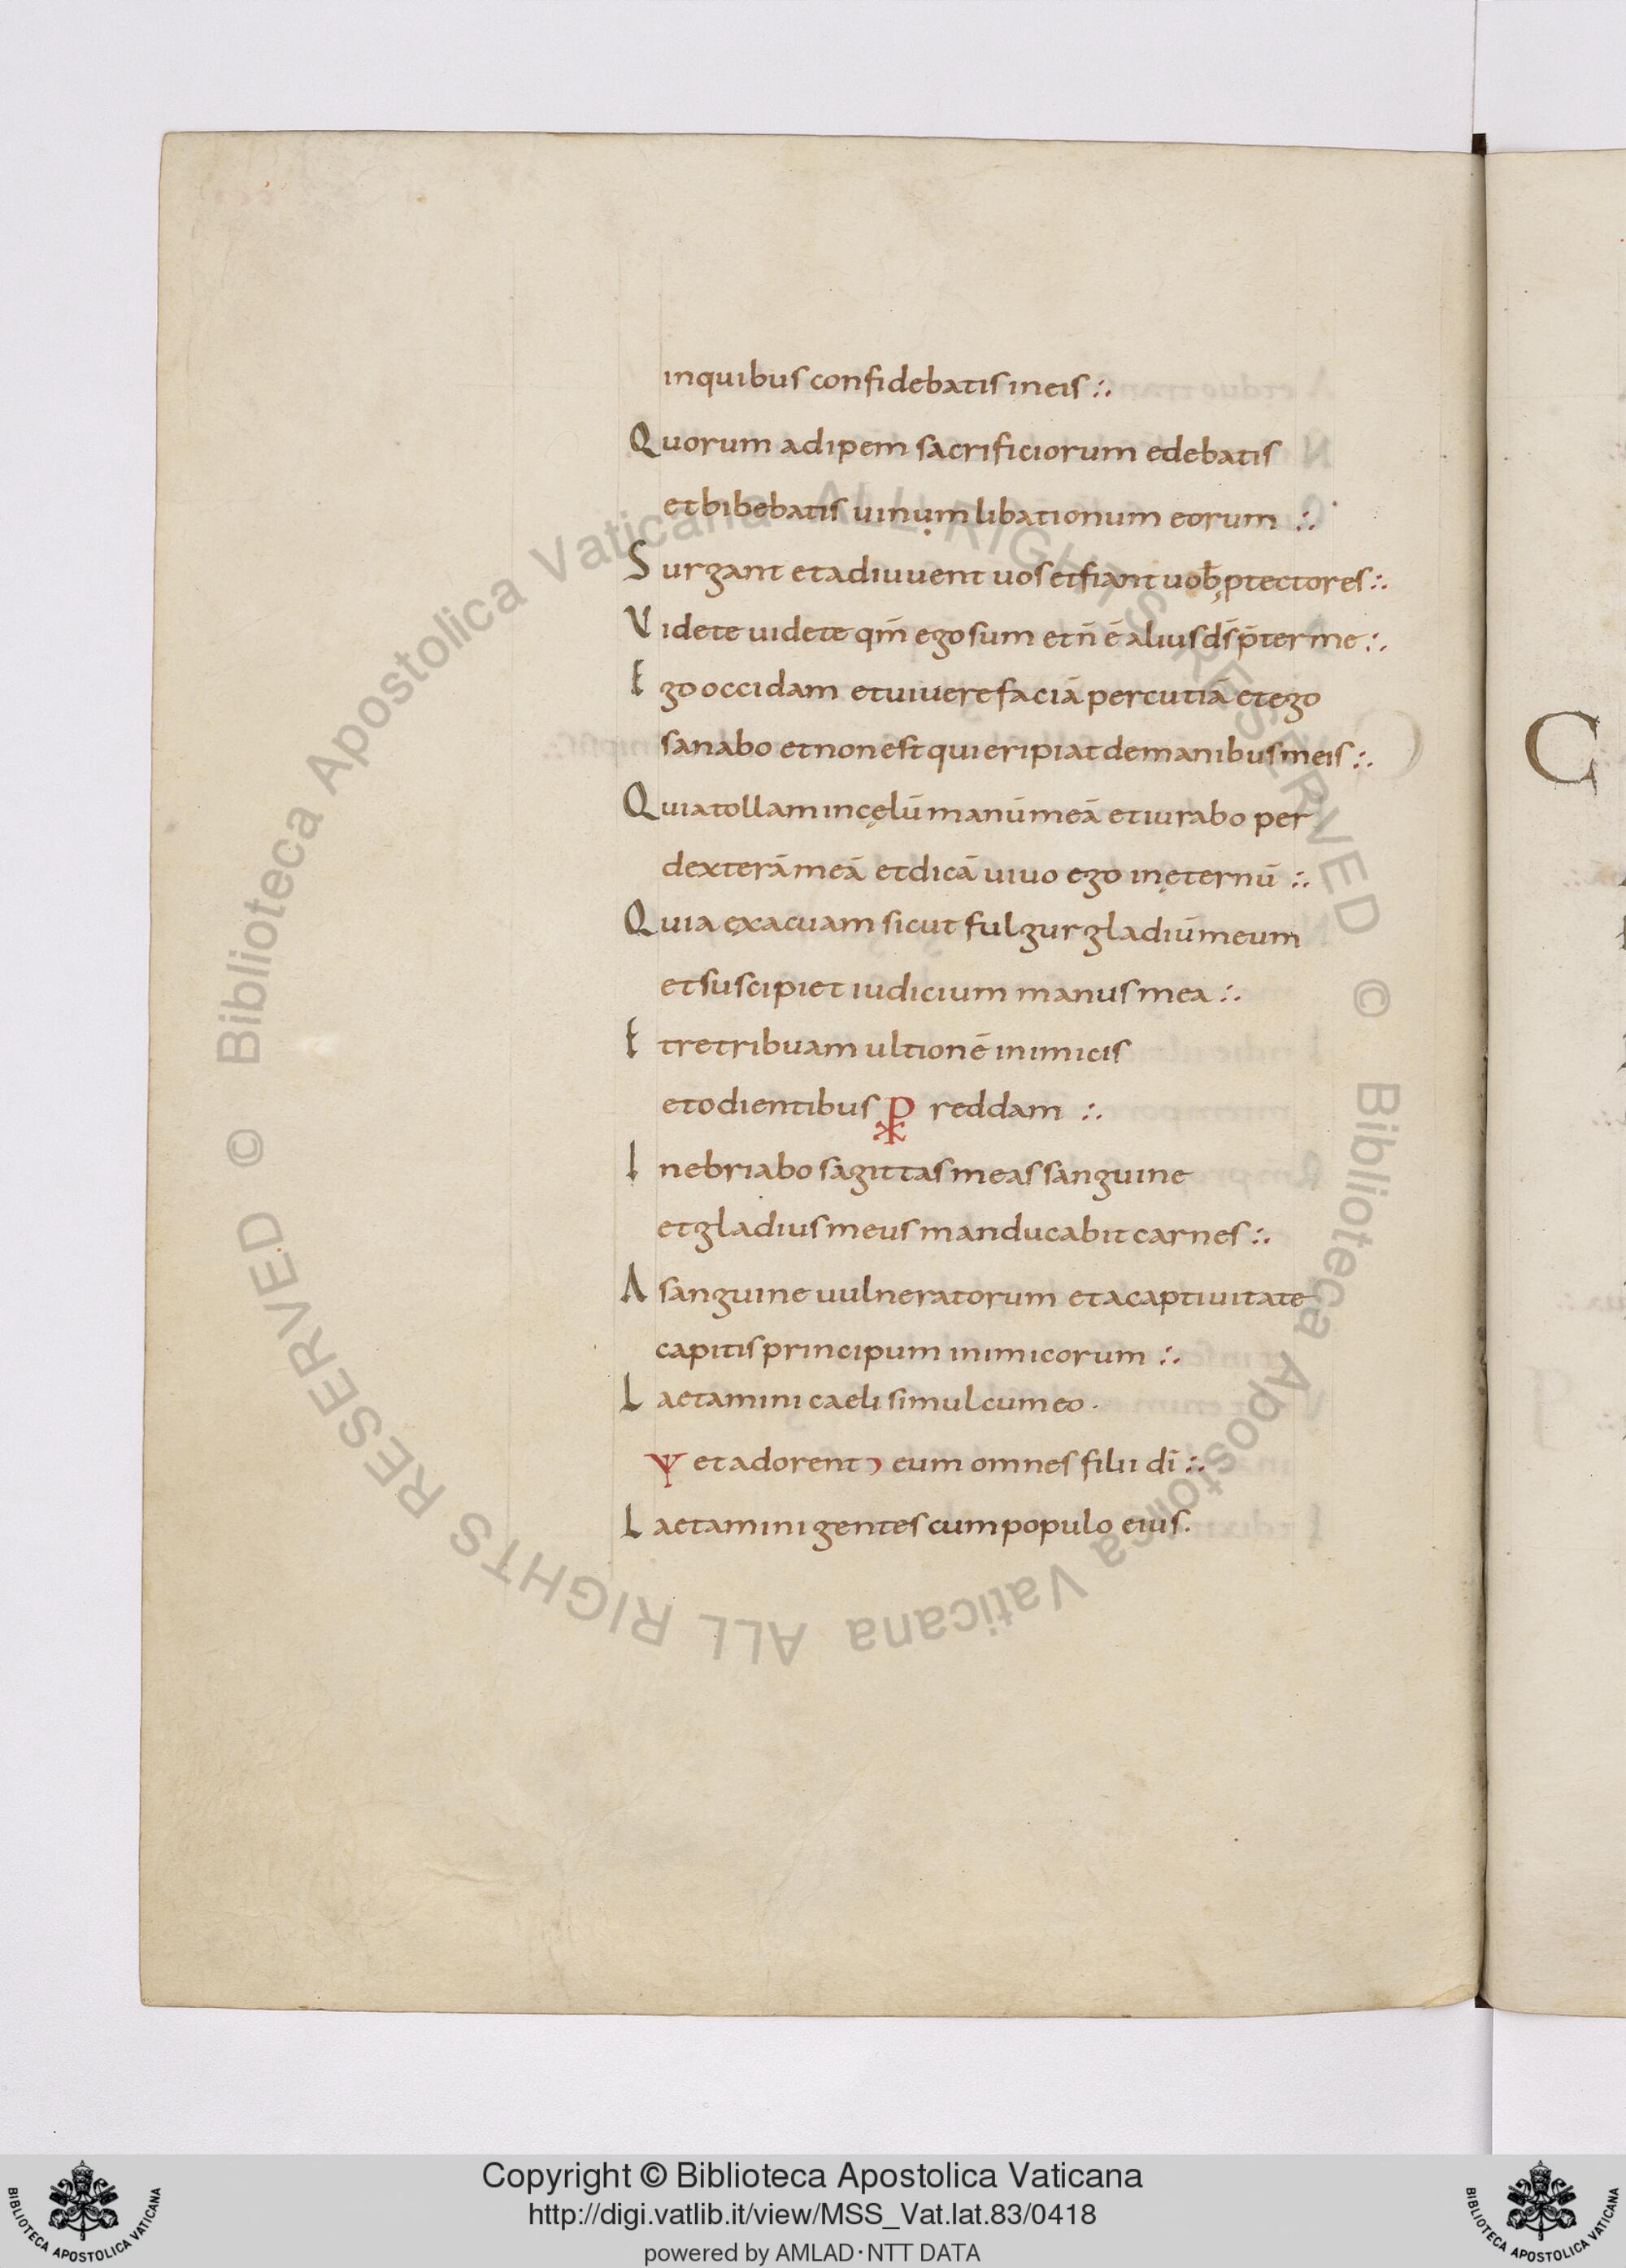 in quibus confidebatis in eis :.
Quorum adipem sacrificiorum edebatis
et bibebatis uinum libationum eorum :.
Surgant et adiuuent uos et fiant uob̄ ꝓtectores :.
Videte uidete qm̄ ego sum et n̄ ē alius ds̄ p̄ter me :.
Ego occidam et uiuere faciā percutiā et ego
sanabo et non est qui eripiat de manibus meis :.
Quia tollam in cęlū manū meā et iurabo per
dexterā meā et dicā uiuo ego in ęternū :.
Quia exacuam sicut fulgur gladiū meum
et suscipiet iudicium manus mea :.
Et retribuam ultionē inimicis
et odientibus ⳩ reddam :.
Inebriabo sagittas meas sanguine
et gladius meus manducabit carnes :.
A sanguine uulneratorum et a captiuitate
capitis principum inimicorum :.
Laetamini caeli simul cum eo .
Ѱ et adorent eum omnes filii dī :.
Laetamini gentes cum populo eius .
C
© Biblioteca Apostolica Vaticana ALL RIGHTS RESERVED © Biblioteca Apostolica Vaticana ALL RIGHTS RESERVED
Copyright © Biblioteca Apostolica Vaticana
http://digi.vatlib.it/view/MSS_Vat.lat.83/0418
powered by AMLAD·NTT DATA
BIBLIOTECA APOSTOLICA VATICANA
BIBLIOTECA APOSTOLICA VATICANA